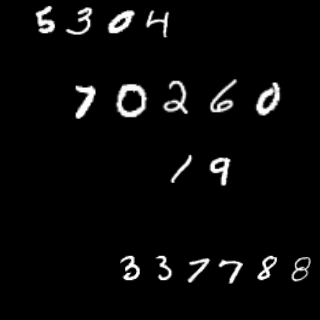 5304
70260
19
337788